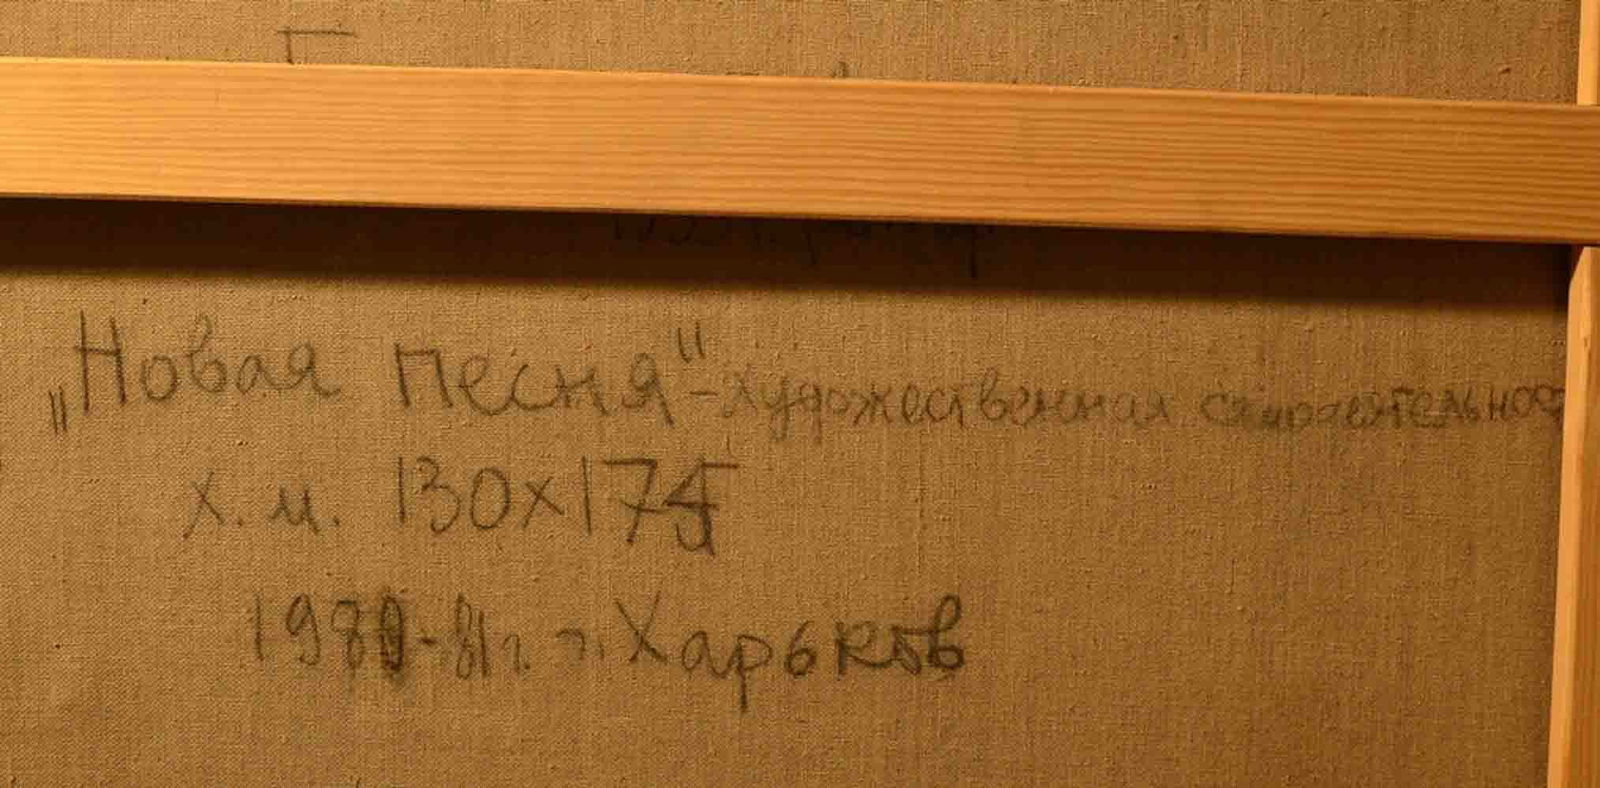 „Новая песня" - художественная самодеятельност
х.м. 130х175
1980-81г. г. Харьков